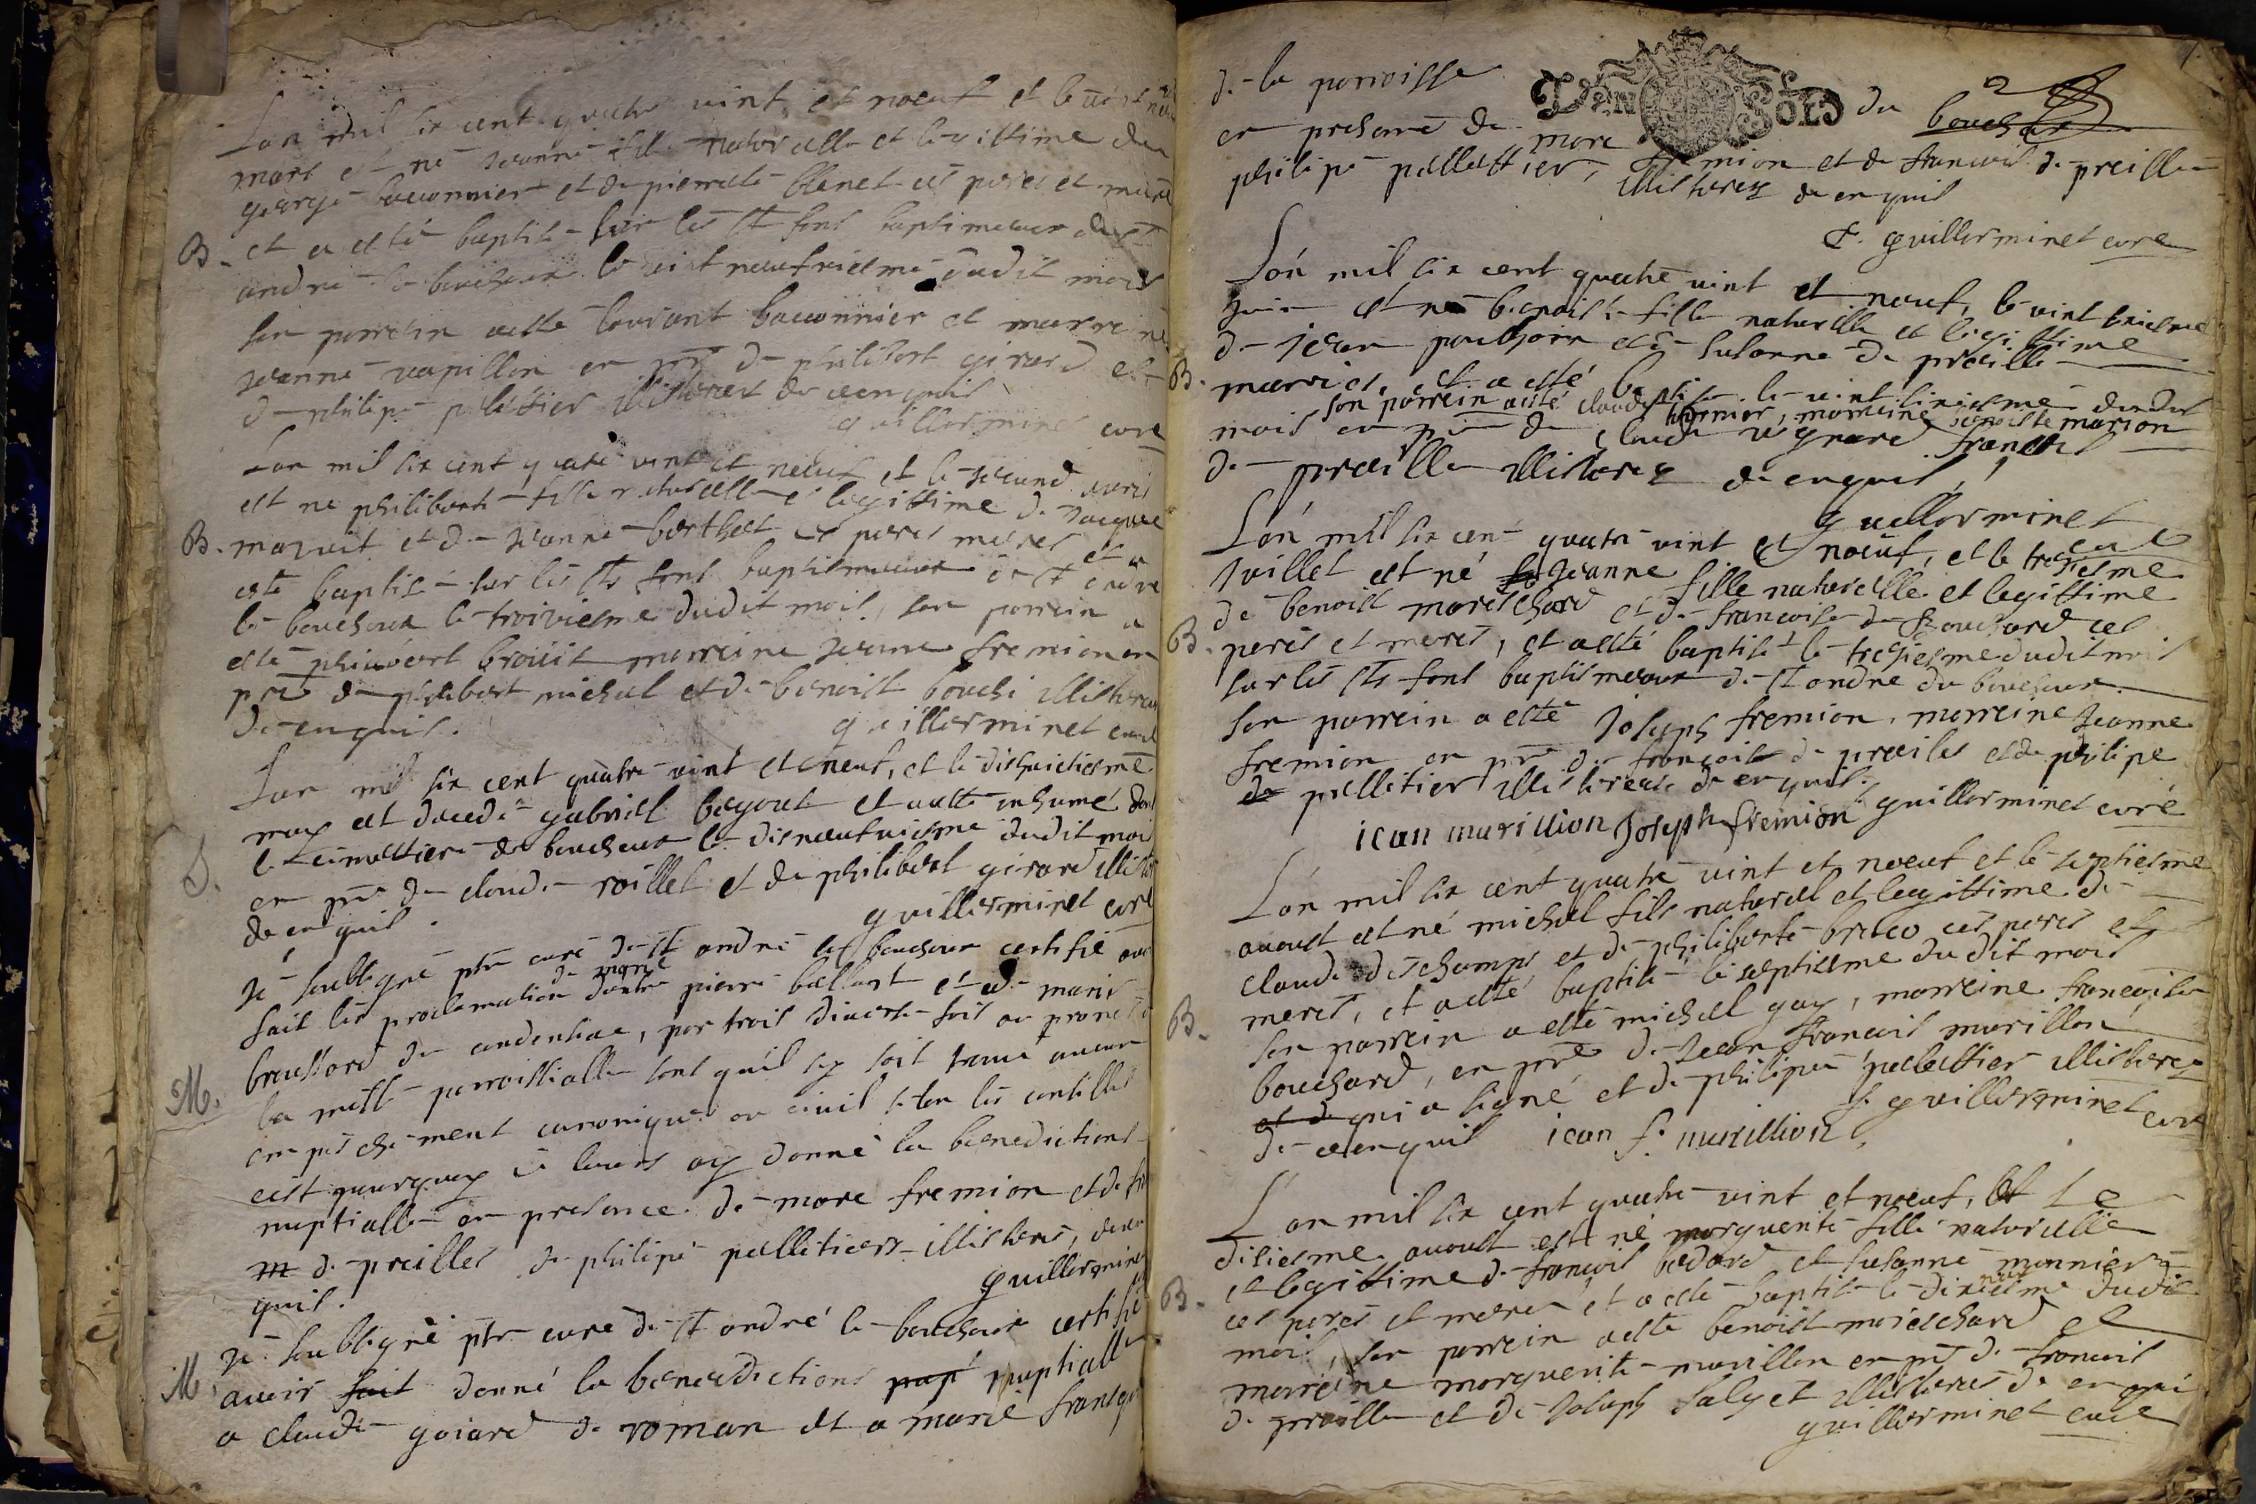 Lan mil six cent quatre vint et noeuf et le vint
mars est né Jeanne fille naturelle et legittime de
george bauonnier et de pierrette blenet ces peres et mere
B. et a esté baptisé sur les sts fons baptismaux de st
andré le bouchoux le vint neufviesme dudit mois
son parrein a esté laurant bauonnier et marreine
jeanne vapillon en pnce de philibert girard et
de philipe peletier illisteres de ce enquis
guillerminet curé
Lan mil six cent quatre vint et neuf et le second avril
est né philiberte fille naturelle et legittime de Jacque
B. moruit et de jeanne berthet ces peres meres et a
esté baptisé sur les sts fons baptismaux de st andre
le bouchoux le troiziesme dudit mois, son parrein a
esté philibert brouit marreine jeanne fremion en
pnce de philibert michel et de benoist bouchi illisteres
de enquis.
guillerminet curé
Lan mil six cent quatre vint et neuf, et le dishuictiesme
may est decedé gabriel begout et a esté inhumé dans
le cimettiere du bouchoux le disneufviesme dudit moi
D. en pnce de claude roillet et de philibert girard illist
de enquis.
guillerminet curé
Je soubsigné ptre curé de st andré le bouchoux certifie avoir
fait les proclamation de marié dantre pierre ballout et de marie
broussard de condensiae, par trois diverse fois au prone de
M. la messe parroissialle sans quil sy soit trouvé aucun
empeschement canonique ou civil selon les conssilles
cest pourquoy je leurs ay donné la benediction
nuptialle en presence de marc fremion et de fr
m de preilles de philipe pelletiers illisteres, de en
quis.
guillerminet
Je soubsigné ptre curé de st andré le bouchoux certifie
M. avoir fait donné la benedictions nup nuptialle
a claude goiard de roman et a marie franc
de la parroisse du bouchoux
DEN SOLS
en presence de marc fremion et de francois de preilles
philipe pellettier, illisteres de enquis
f. guillerminet curé
Lan mil six cent quatre vint et noeuf, le vint sixiesme
juin est né benoiste fille naturelle et legittime
de jean pauchoin et de susanne de preille
B. marries, et a esté baptisé le vint sixiesme dudit
son parrein a esté claude tournier, marreine benoiste marion
mois en pnce de claude regnard francois
de preilles illisteres de enquis,
guillerminet curé
Lan mil six cent quatre vint et noeuf, et le tresiesme
juillet est né Jeanne fille naturelle et legittime
de benoist mareschard et de francoise de bouchard ces
B. peres et meres, et a esté baptisé le tresiesme dudit mois
sur les sts fons baptismeaux de st andre du bouchoux.
son parrein a esté Joseph fremion, marreine Jeanne
fremion en pnce de francois de preiles et de philipe
de pelletier illisteres de enquis
guillerminet curé
ican murillion Joseph fremion
Lan mil six cent quatre vint et noeuf et le septiesme
aoust est né michel fils naturel et legittime de
claude deschamps et de philiberte brleco ces peres et
meres, et a esté baptisé le septiesme dudit mois
B. son parrein a esté michel gay, marreine francoise
bouchard, en pnce de Jean francois murillon
et de qui a signé et de philipe pelettier illisteres
de ce enquis ican f. murillion f. guillerminet curé
Lan mil six cent quatre vint et noeuf, et Le
disiesme aoust est né marguerite fille naturelle
et legittime de francois bedard et susanne monnier
B. ces peres et meres et a esté baptisé le dixiesme dudit
mois, son parrein a esté benoist mareschard et
marreine marguerite murillon en pnce de francois
de preille et de Joseph Saly et illisteres de enqui
guillerminet curé